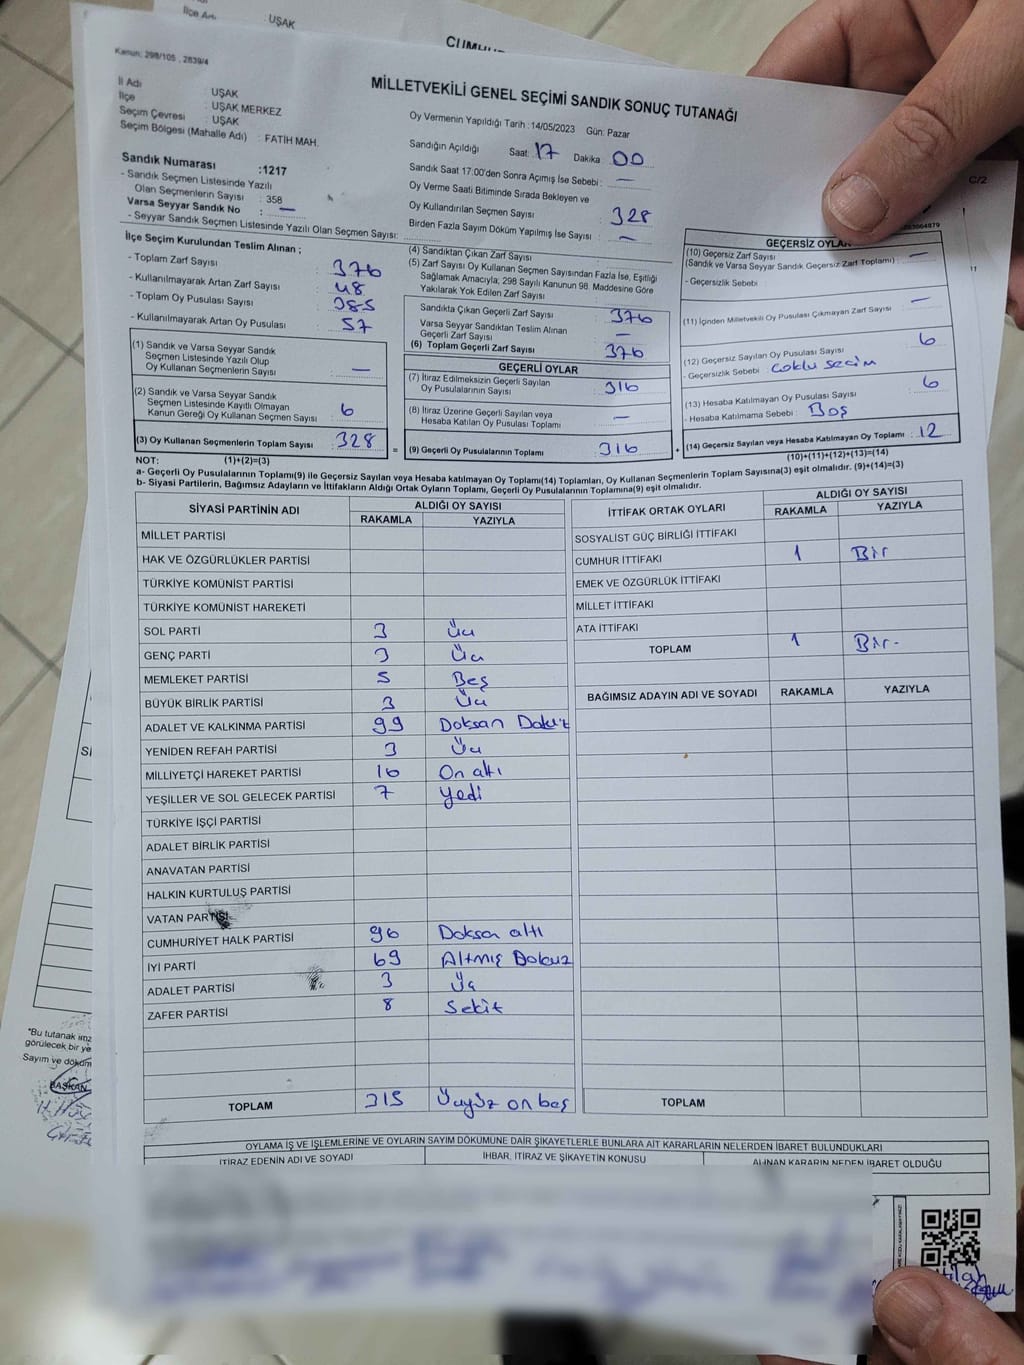 İlçe
: UŞAK
Kanun: 298/105 , 2839/4
MİLLETVEKİLİ GENEL SEÇİMİ SANDIK SONUÇ TUTANAĞI
İl Adı : UŞAK
İlçe : UŞAK MERKEZ
Seçim Çevresi : UŞAK
Seçim Bölgesi (Mahalle Adı) : FATİH MAH.
Oy Vermenin Yapıldığı Tarih : 14/05/2023 Gün: Pazar
Sandığın Açıldığı Saat: 17 Dakika 00
Sandık Saat 17:00'den Sonra Açımış İse Sebebi : —
Oy Verme Saati Bitiminde Sırada Bekleyen ve
Oy Kullandırılan Seçmen Sayısı : 328
Birden Fazla Sayım Döküm Yapılmış İse Sayısı : —
C/2
Sandık Numarası :1217
- Sandık Seçmen Listesinde Yazılı
Olan Seçmenlerin Sayısı : 358
Varsa Seyyar Sandık No : —
- Seyyar Sandık Seçmen Listesinde Yazılı Olan Seçmen Sayısı:
İlçe Seçim Kurulundan Teslim Alınan ;
- Toplam Zarf Sayısı : 376
- Kullanılmayarak Artan Zarf Sayısı : 48
- Toplam Oy Pusulası Sayısı : 385
- Kullanılmayarak Artan Oy Pusulası : 57
(1) Sandık ve Varsa Seyyar Sandık
Seçmen Listesinde Yazılı Olup
Oy Kullanan Seçmenlerin Sayısı : —
(2) Sandık ve Varsa Seyyar Sandık
Seçmen Listesinde Kayıtlı Olmayan
Kanun Gereği Oy Kullanan Seçmen Sayısı : 6
(3) Oy Kullanan Seçmenlerin Toplam Sayısı : 328
(1)+(2)=(3)
(4) Sandıktan Çıkan Zarf Sayısı :
(5) Zarf Sayısı Oy Kullanan Seçmen Sayısından Fazla İse, Eşitliği
Sağlamak Amacıyla; 298 Sayılı Kanunun 98. Maddesine Göre
Yakılarak Yok Edilen Zarf Sayısı :
Sandıkta Çıkan Geçerli Zarf Sayısı : 376
Varsa Seyyar Sandıktan Teslim Alınan
Geçerli Zarf Sayısı : —
(6) Toplam Geçerli Zarf Sayısı : 376
GEÇERLİ OYLAR
(7) İtiraz Edilmeksizin Geçerli Sayılan
Oy Pusulalarının Sayısı : 316
(8) İtiraz Üzerine Geçerli Sayılan veya
Hesaba Katılan Oy Pusulası Toplamı : —
= (9) Geçerli Oy Pusulalarının Toplamı : 316
GEÇERSİZ OYLAR
(10) Geçersiz Zarf Sayısı
(Sandık ve Varsa Seyyar Sandık Geçersiz Zarf Toplamı) : —
- Geçersizlik Sebebi :
(11) İçinden Milletvekili Oy Pusulası Çıkmayan Zarf Sayısı : —
(12) Geçersiz Sayılan Oy Pusulası Sayısı : 6
- Geçersizlik Sebebi : Çoklu seçim
(13) Hesaba Katılmayan Oy Pusulası Sayısı : 6
- Hesaba Katılmama Sebebi : Boş
+ (14) Geçersiz Sayılan veya Hesaba Katılmayan Oy Toplamı : 12
(10)+(11)+(12)+(13)=(14)
NOT:
a- Geçerli Oy Pusulalarının Toplamı(9) ile Geçersiz Sayılan veya Hesaba katılmayan Oy Toplamı(14) Toplamları, Oy Kullanan Seçmenlerin Toplam Sayısına(3) eşit olmalıdır. (9)+(14)=(3)
b- Siyasi Partilerin, Bağımsız Adayların ve İttifakların Aldığı Ortak Oyların Toplamı, Geçerli Oy Pusulalarının Toplamına(9) eşit olmalıdır.
SİYASİ PARTİNİN ADI
ALDIĞI OY SAYISI
RAKAMLA YAZIYLA
MİLLET PARTİSİ
HAK VE ÖZGÜRLÜKLER PARTİSİ
TÜRKİYE KOMÜNİST PARTİSİ
TÜRKİYE KOMÜNİST HAREKETİ
SOL PARTİ 3 Üç
GENÇ PARTİ 3 Üç
MEMLEKET PARTİSİ 5 Beş
BÜYÜK BİRLİK PARTİSİ 3 Üç
ADALET VE KALKINMA PARTİSİ 99 Doksan Dokuz
YENİDEN REFAH PARTİSİ 3 Üç
MİLLİYETÇİ HAREKET PARTİSİ 16 On altı
YEŞİLLER VE SOL GELECEK PARTİSİ 7 Yedi
TÜRKİYE İŞÇİ PARTİSİ
ADALET BİRLİK PARTİSİ
ANAVATAN PARTİSİ
HALKIN KURTULUŞ PARTİSİ
VATAN PARTİSİ
CUMHURİYET HALK PARTİSİ 96 Doksan altı
İYİ PARTİ 69 Altmış Dokuz
ADALET PARTİSİ 3 Üç
ZAFER PARTİSİ 8 Sekiz
TOPLAM 315 Üçyüz on beş
İTTİFAK ORTAK OYLARI
ALDIĞI OY SAYISI
RAKAMLA YAZIYLA
SOSYALİST GÜÇ BİRLİĞİ İTTİFAKI
CUMHUR İTTİFAKI 1 Bir
EMEK VE ÖZGÜRLÜK İTTİFAKI
MİLLET İTTİFAKI
ATA İTTİFAKI
TOPLAM 1 Bir-
BAĞIMSIZ ADAYIN ADI VE SOYADI RAKAMLA YAZIYLA
TOPLAM
OYLAMA İŞ VE İŞLEMLERİNE VE OYLARIN SAYIM DÖKÜMÜNE DAİR ŞİKAYETLERLE BUNLARA AİT KARARLARIN NELERDEN İBARET BULUNDUKLARI
İTİRAZ EDENİN ADI VE SOYADI İHBAR, İTİRAZ VE ŞİKAYETİN KONUSU ALINAN KARARIN NEDEN İBARET OLDUĞU
"Bu tutanak imz
görülecek bir ye
Sayım ve döküm
BAŞKAN